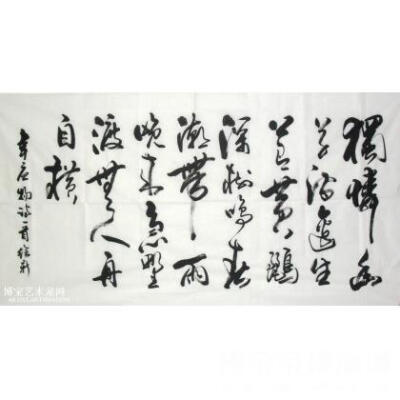 獨憐幽
草澗邊生
上有黄鸝
深樹鳴春
潮帶雨
晚來急野
渡無人舟
自横
韋应物詩一首
博宝艺术家网